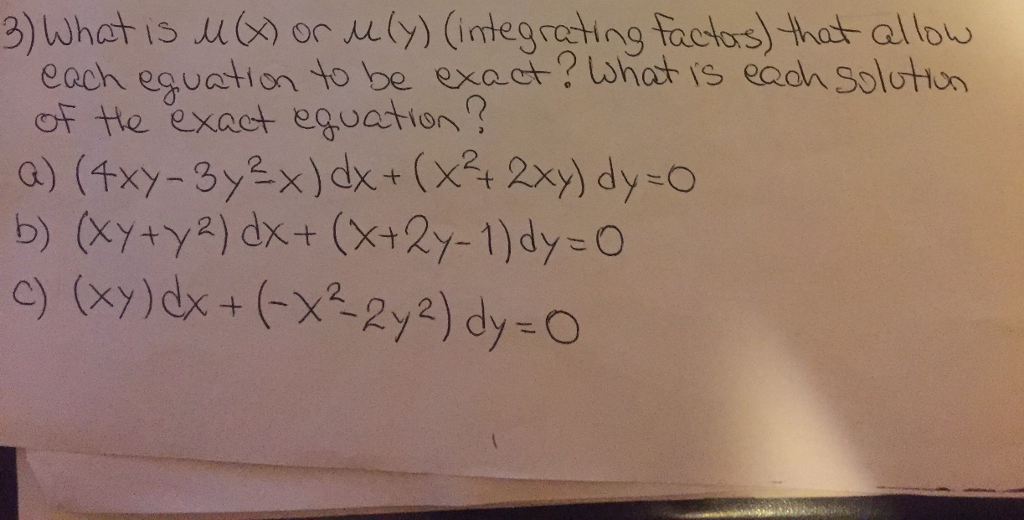 3) What is μ(x) or μ(y) (integrating factors) that allow
each equation to be exact? What is each solution
of the exact equation?
a) (4xy-3y²-x)dx+(x²+2xy)dy=0
b) (xy+y²)dx+(x+2y-1)dy=0
c) (xy)dx+(-x²-2y²)dy=0